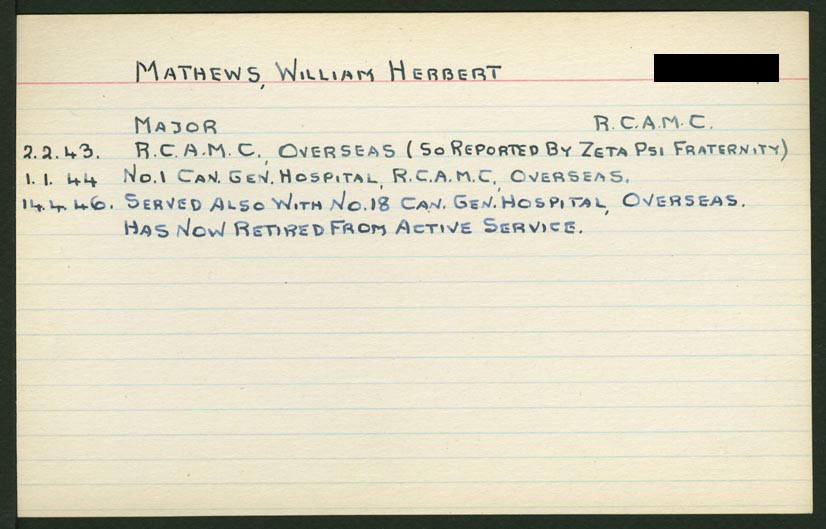 MATHEWS, WILLIAM HERBERT
MAJOR R.C.A.M.C.
2.2.43. R.C.A.M.C., OVERSEAS (SO REPORTED BY ZETA PSI FRATERNITY)
1.1.44 NO.1 CAN. GEN. HOSPITAL, R.C.A.M.C., OVERSEAS.
14.4.46. SERVED ALSO WITH NO.18 CAN. GEN. HOSPITAL, OVERSEAS.
HAS NOW RETIRED FROM ACTIVE SERVICE.